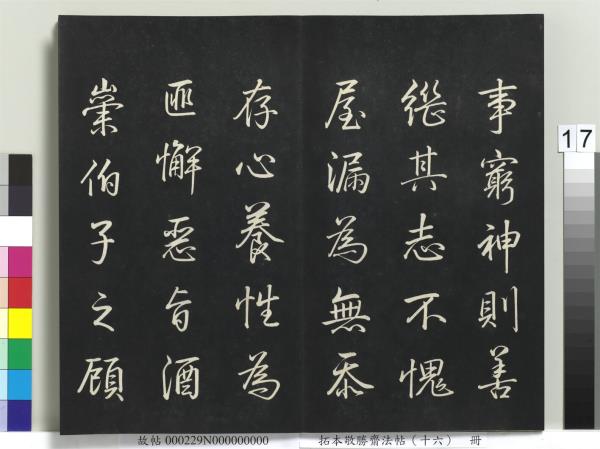 事窮神則善
繼其志不愧
屋漏為無忝
存心養性為
匪懈惡旨酒
崇伯子之顧
17
故帖 000229N000000000 拓本敬勝齋法帖（十六） 冊